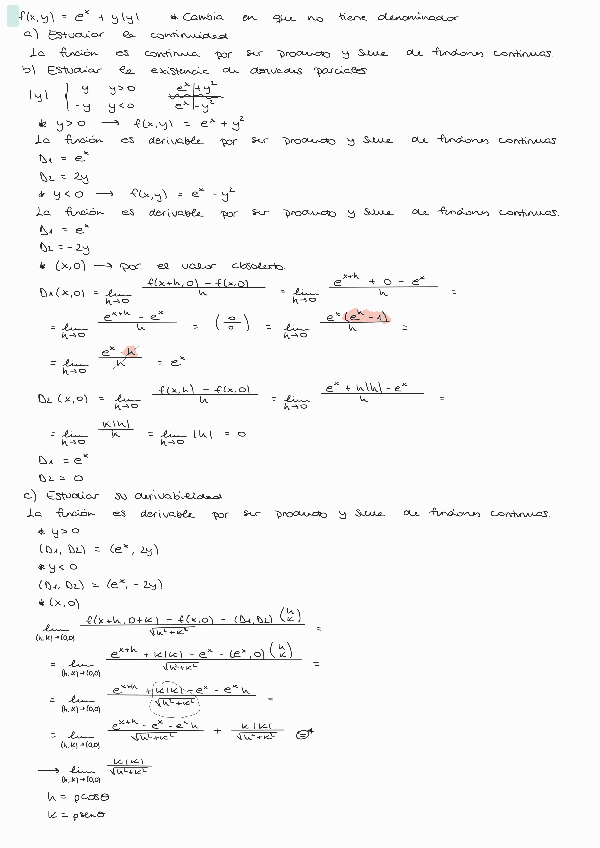 f(x,y) = e^x + y|y|   * Cambia en que no tiene denominador
a) Estudiar la continuidad
La función es continua por ser producto y suma de funciones continuas.
b) Estudiar la existencia de derivadas parciales
|y| { y   y>0   e^x + y^2
-y   y<0   e^x - y^2
* y>0 → f(x,y) = e^x + y^2
La función es derivable por ser producto y suma de funciones continuas
D1 = e^x
D2 = 2y
* y<0 → f(x,y) = e^x - y^2
La función es derivable por ser producto y suma de funciones continuas.
D1 = e^x
D2 = -2y
* (x,0) → por el valor absoluto.
D1(x,0) = lim h→0 (f(x+h,0) - f(x,0))/h = lim h→0 (e^(x+h) + 0 - e^x)/h =
= lim h→0 (e^(x+h) - e^x)/h = (0/0) = lim h→0 (e^x(e^h - 1))/h =
= lim h→0 (e^x · h)/h = e^x
D2(x,0) = lim h→0 (f(x,h) - f(x,0))/h = lim h→0 (e^x + h|h| - e^x)/h =
= lim h→0 h|h|/h = lim h→0 |h| = 0
D1 = e^x
D2 = 0
c) Estudiar su derivabilidad
La función es derivable por ser producto y suma de funciones continuas.
* y>0
(D1, D2) = (e^x, 2y)
* y<0
(D1, D2) = (e^x, -2y)
* (x,0)
lim (h,k)→(0,0) (f(x+h, 0+k) - f(x,0) - (D1,D2) (h k))/√(h²+k²) =
= lim (h,k)→(0,0) (e^(x+h) + k|k| - e^x - (e^x, 0) (h k))/√(h²+k²) =
= lim (h,k)→(0,0) (e^(x+h) + k|k| - e^x - e^x h)/√(h²+k²) =
= lim (h,k)→(0,0) (e^(x+h) - e^x - e^x h)/√(h²+k²) + k|k|/√(h²+k²) =
→ lim (h,k)→(0,0) k|k|/√(h²+k²)
h = ρcosθ
k = ρsenθ